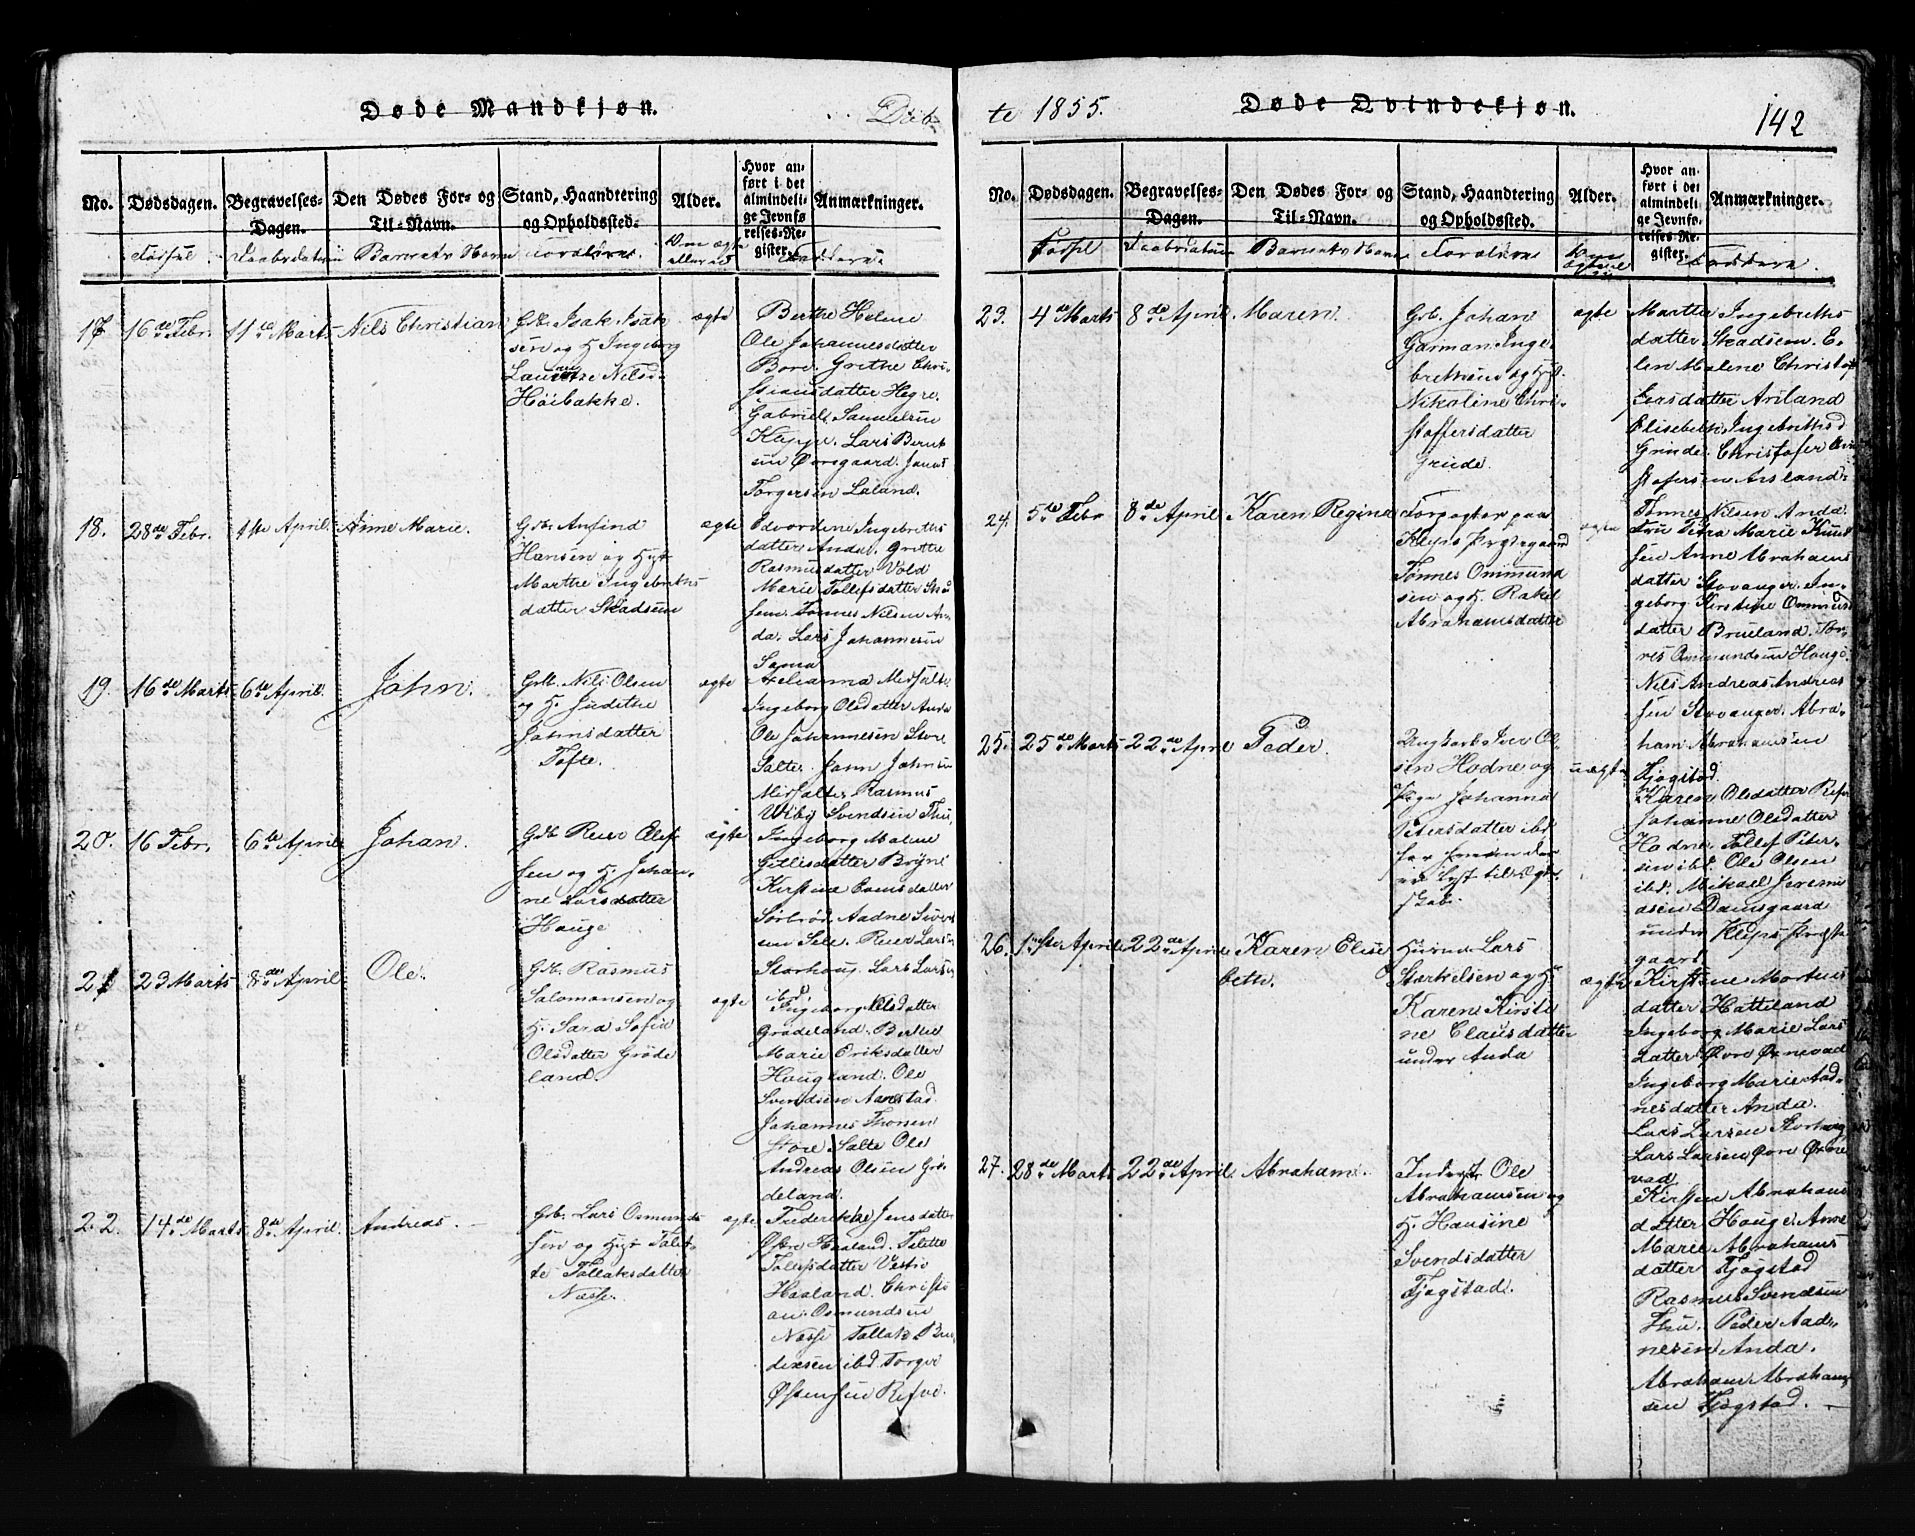 Døde Mandkjøn. Døb
No. Dødsdagen. Begravelses-Dagen. Den Dødes For- og Til-Navn. Stand, Haandtering og Opholdssted. Alder. Hvor anført i det almindelige Jevnførelses-Register. Anmærkninger.
Barnets Navn
17. 16de Febr. 11te Marts Nils Christian
Gdb. Isak Isak
sen og H. Ingeborg
Nils
Høibakke.
ægte
Berthe Helene
Ole Johannesdatter
Bore. Grethe Chri-
stiansdatter Hegre.
Gabriel Samuelsen
Kleppe. Lars Bernt
sen Øvregaard. Jonas
Torgersen Laland.
18. 28de Febr. 1ste April. Anne Marie.
Gdb. Anfind
Hansen og Hst
Marthe Ingebreths
datter Skadsem
ægte
Edvardine Ingebreths
datter Anda. Grethe
Rasmusdatter Vold
Marie Tollefsdatter
Tønnes Nilsen An
da. Lars Johannesen
Soma
19. 16de Marts 6te April. John.
Gdb. Nils Olsen
og H. Judithe
Johnsdatter
Tofte.
ægte
Ingeborg Olsdatter Anda
Ole Johannesen Store
Salte. John Johnsen
Midsalte. Rasmus
Wiby Svendsen Thu.
20. 16 Febr. 6te April Johan.
Gdb. Reier Olef
sen og H. Johan-
ne Larsdatter
Hauge
ægte
Ingeborg Malene
Gitlesdatter Bryne
Kirstine Evensdatter
Sørbrød. Aadne Siverts
sen Sele. Reier Larsen
Storhoug. Lars Larsen
ibd.
21 23 Marts 8de April Ole.
Gdb. Rasmus
Salomonsen og
H. Sara Sofie
Olsdatter Grøde
land.
ægte
Ingeborg Olsdatter
Grødeland. Berthe
Marie Eriksdatter
Hougland. Ole
Svendsen Aarestad.
Johannes Thonen
Store Salte Ole
Andreas Olsen Grø
deland.
22. 14de Marts 8de April. Andreas.
Gdb. Lars Osmund
sen og Hst Talet-
te Tollaksdatter
Næsse.
ægte
Frederikke Jensdatter
Østre Haaland. Talette
Tolersdatter Vestre
Haaland. Christi
an Osmundsen
Næsse Tollak Ben
dixsen ibd. Torger
Østensen Refve.
te 1855. Døde Qvindekjøn. 142
No. Dødsdagen. Begravelses-Dagen. Den Dødes For- og Til-Navn. Stand, Haandtering og Opholdssted. Alder. Hvor anført i det almindelige Jevnførelses-Register. Anmærkninger.
Fødsel Barnets Navn Forældrene Faddere.
23. 4de Marts 8de April Maren.
Gdb. Johan
Garman Inge-
brethsen og Hst.
Nikoline Chri-
stoffersdatter
Grude.
ægte
Marthe Ingebreths
datter Skadsem. E-
len Malene Christof
fersdatter Arsland
Elisebeth Ingebrethsd
Grude. Christofer Chri
stofersen Arsland.
24. 5te Febr 8de April Karen Regine
Forpagter paa
Kleps Præstegaard
Tønnes Ommund
sen og H. Rakel
Abrahamsdatter
ægte
Tønnes Nilsen Anda.
Fru Petra Marie Knud
sen Anne Abrahams
datter Stavanger. In-
geborg Kirstine Ommunds
datter Brueland. Tor-
res Ommundsen Houge.
Nils Andreas Andreas
sen Stavanger. Abra-
ham Abrahamsen
Fjogstad.
25. 25de Marts 22de April Peder.
Ungkarl Iver Ol-
sen Hodne og
Pige Johanna
Petersdatter ibd.
uægte
Karen Olsdatter Refve
Johanne Olsdatter
Hodne. Tollef Peter-
sen ibd. Ole Olsen
ibd. Mikael Jeremi
asen Damsgaard
under Kleps Præste
gaard
26. 1ste April 22de April Karen Elise
bette.
Huusm. Lars
Størkelsen og H
Karen Kirsti
ne Clausdatter
under Anda
ægte
Kirstine Mortens
datter Hatteland
Ingeborg Marie Lars
datter Øvre Øxnevad
Ingeborg Marie Aad-
nesdatter Anda.
Lars Larsen Storhoug
Lars Larsen Øvre Øxne
vad.
27. 28de Marts 22de April Abraham.
Inderst Ole
Abrahamsen og
H. Hansine
Svendsdatter
Fjogstad.
Kirsten Abrahams
datter Houge. Anne
Marie Abrahams
datter Fjogstad
Rasmus Svendsen
Thu. Peder Aad-
nesen Anda.
Abraham Abraham
sen Fjogstad.